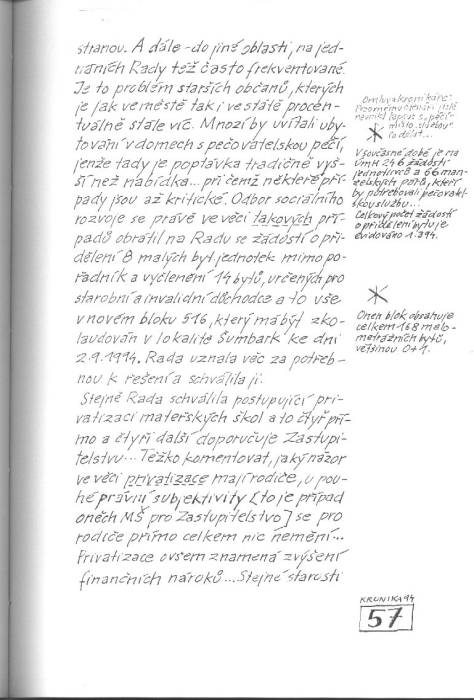 stranou. A dále - do jiné oblasti, na jed-
náních Rady též často frekventované.
Je to problém starších občanů, kterých
je jak ve městě tak i ve státě procen-
tuálně stále víc. Mnozí by uvítali uby-
tování v domech s pečovatelskou péčí,
jenže tady je poptávka tradičně vyš-
ší než nabídka... při čemž některé pří-
pady jsou až kritické. Odbor sociálního
rozvoje se právě ve věci takových pří-
padů obrátil na Radu se žádostí o při-
dělení 8 malých byt. jednotek mimo po-
řadník a vyčlenění 14 bytů, určených pro
starobní a invalidní důchodce a to vše
v novém bloku 516, který má být zko-
laudován v lokalitě Šumbark ke dni
2.9.1994. Rada uznala věc za potřeb-
nou k řešení a schválila ji.
Stejně Rada schválila postupující pri-
vatizaci mateřských škol a to čtyř pří-
mo a čtyři další doporučuje Zastupi-
telstvu... Těžko komentovat, jaký názor
ve věci privatizace mají rodiče, u pou-
hé právní subjektivity [to je případ
oněch MŠ pro Zastupitelstvo] se pro
rodiče přímo celkem nic nemění...
Privatizace ovšem znamená zvýšení
finančních nároků... Stejné starosti
Omluva kronikáře:
"péčí"
místo "službou"
V současné době je na
ÚMH 246 žádostí
jednotlivců a 66 man-
želských párů, kteří
by potřebovali pečovatel-
skou službu...
Celkový počet žádostí
o přidělení bytu je
evidováno 1.394.
Onen blok obsahuje
celkem 168 malo-
metrážních bytů,
většinou 0+1.
KRONIKA 94
57